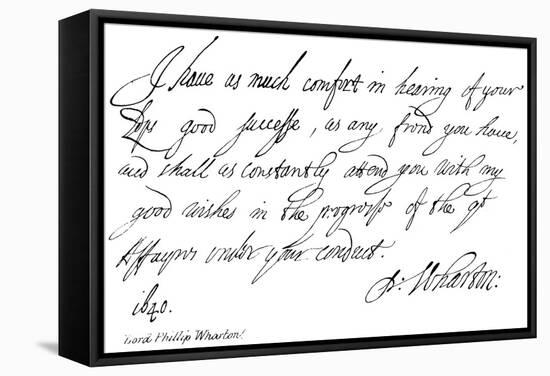 I haue as much comfort in hearing of your
Lops good successe, as any frend you haue,
and shall as constantly attend you with my
good wishes in the progress of the gt
Affayrs under your conduct.
P: Wharton:
1640.
Lord Phillip Wharton.